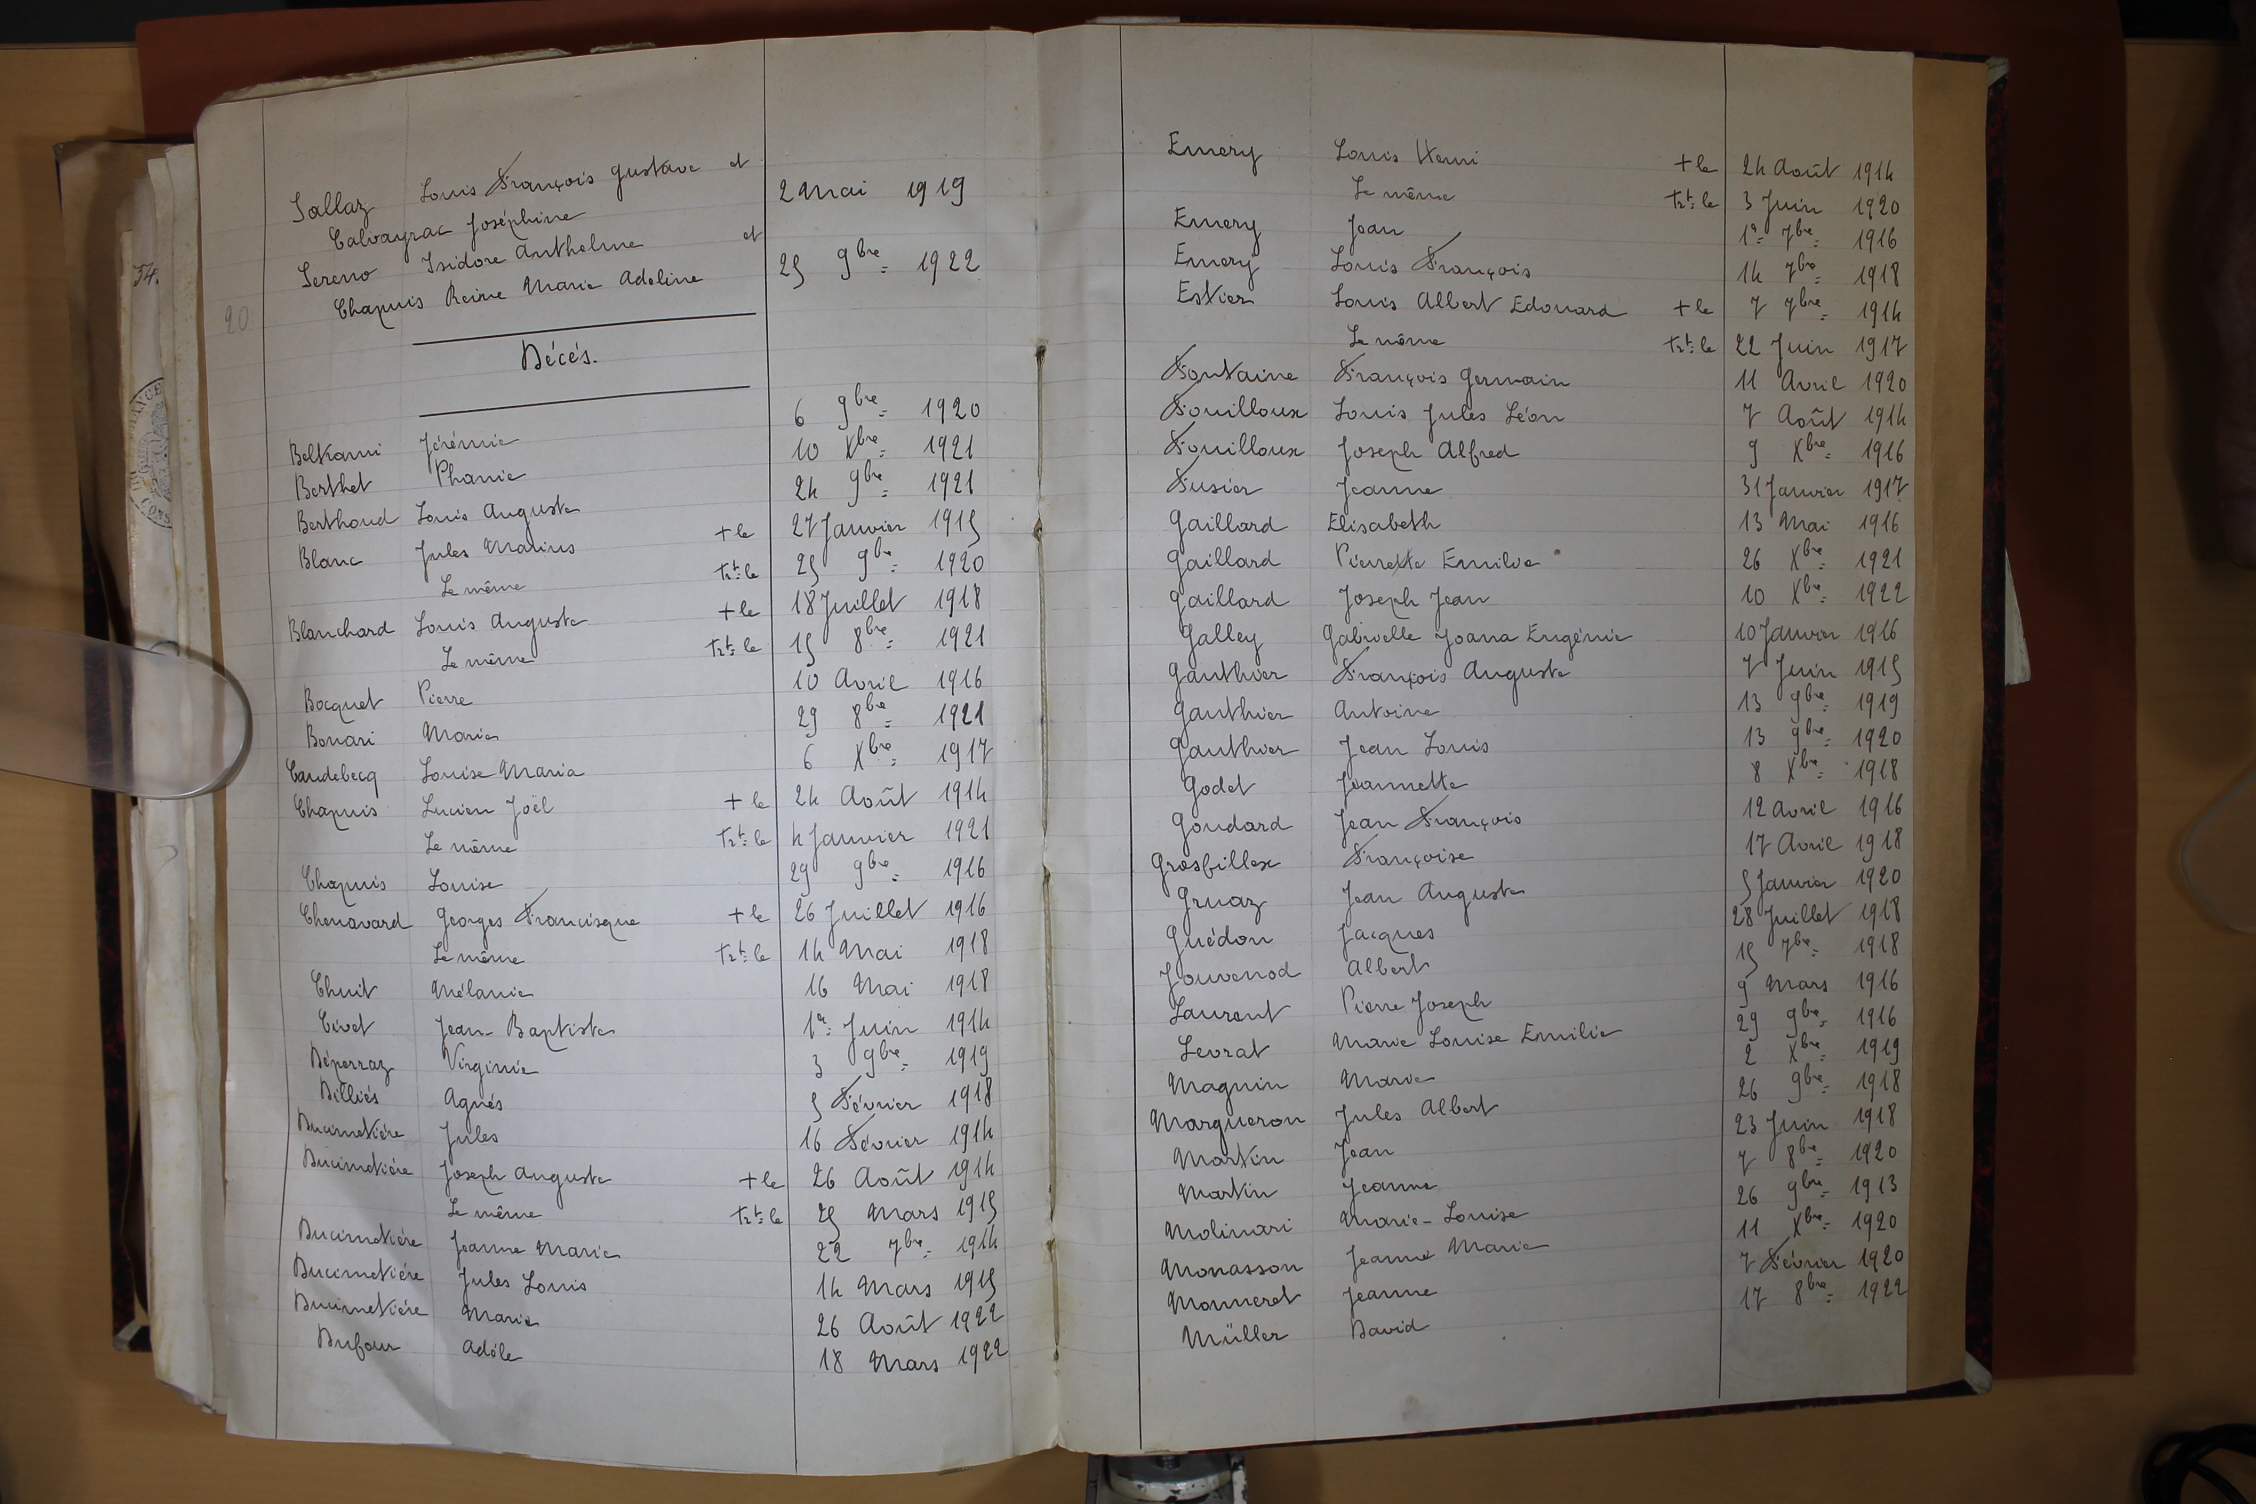 54.
20
Sallaz Louis François Gustave et
Calvayrac Joséphine 2 Mai 1919
Sereno Isidore Anthelme et
Chapuis Reine Marie Adeline 25 9bre 1922
Décés.
Beltrami Jérémie 6 9bre 1920
Berthet Phanie 10 Xbre 1921
Berthoud Louis Auguste 24 9bre 1921
Blanc Jules Marius + le 27 Janvier 1915
Le même Trt le 25 9bre 1920
Blanchard Louis Auguste + le 18 Juillet 1918
Le même Trt le 15 8bre 1921
Bocquet Pierre 10 Avril 1916
Bonari Marie 29 8bre 1921
Caudebecq Louise Maria 6 Xbre 1917
Chapuis Lucien Joël + le 24 Août 1914
Le même Trt le 4 Janvier 1921
Chapuis Louise 29 9bre 1916
Chenavard Georges Francisque + le 26 Juillet 1916
Le même Trt le 14 Mai 1918
Chuit Mélanie 16 Mai 1918
Civet Jean-Baptiste 1er Juin 1914
Déperraz Virginie 3 9bre 1919
Billiés Agnés 5 Février 1918
Ducimetiére Jules 16 Février 1914
Ducimetiére Joseph Auguste + le 26 Août 1914
Le même Trt le 25 Mars 1915
Ducimetiére Jeanne Marie 22 7bre 1914
Ducimetiére Jules Louis 14 Mars 1915
Ducimetiére Marie 26 Août 1922
Dufour Adéle 18 Mars 1922
Emery Louis Henri + le 24 Août 1914
Le même Trt le 3 Juin 1920
Emery Jean 1er 7bre 1916
Emery Louis François 14 7bre 1918
Estier Louis Albert Edouard + le 7 7bre 1914
Le même Trt le 22 Juin 1917
Fontaine François Germain 11 Avril 1920
Fouilloux Louis Jules Léon 7 Août 1914
Fouilloux Joseph Alfred 9 Xbre 1916
Fusier Jeanne 31 Janvier 1917
Gaillard Elisabeth 13 Mai 1916
Gaillard Pierrette Emilie 26 Xbre 1921
Gaillard Joseph Jean 10 Xbre 1922
Galley Gabrielle Joana Eugénie 10 Janvier 1916
Gauthier François Auguste 7 Juin 1915
Gauthier Antoine 13 9bre 1919
Gauthier Jean Louis 13 9bre 1920
Godet Jeannette 8 Xbre 1918
Goudard Jean François 12 Avril 1916
Grosfillex Françoise 17 Avril 1918
Gruaz Jean Auguste 5 Janvier 1920
Guédon Jacques 28 Juillet 1918
Jouvenod Albert 15 7bre 1918
Laurent Pierre Joseph 9 Mars 1916
Levrat Marie Louise Emilie 29 9bre 1916
Magnin Marie 2 Xbre 1919
Margueron Jules Albert 26 9bre 1918
Martin Jean 23 Juin 1918
Martin Jeanne 7 8bre 1920
Molinari Marie-Louise 26 9bre 1913
Monasson Jeanne Marie 11 Xbre 1920
Monneret Jeanne 7 Février 1920
Müller David 17 8bre 1922